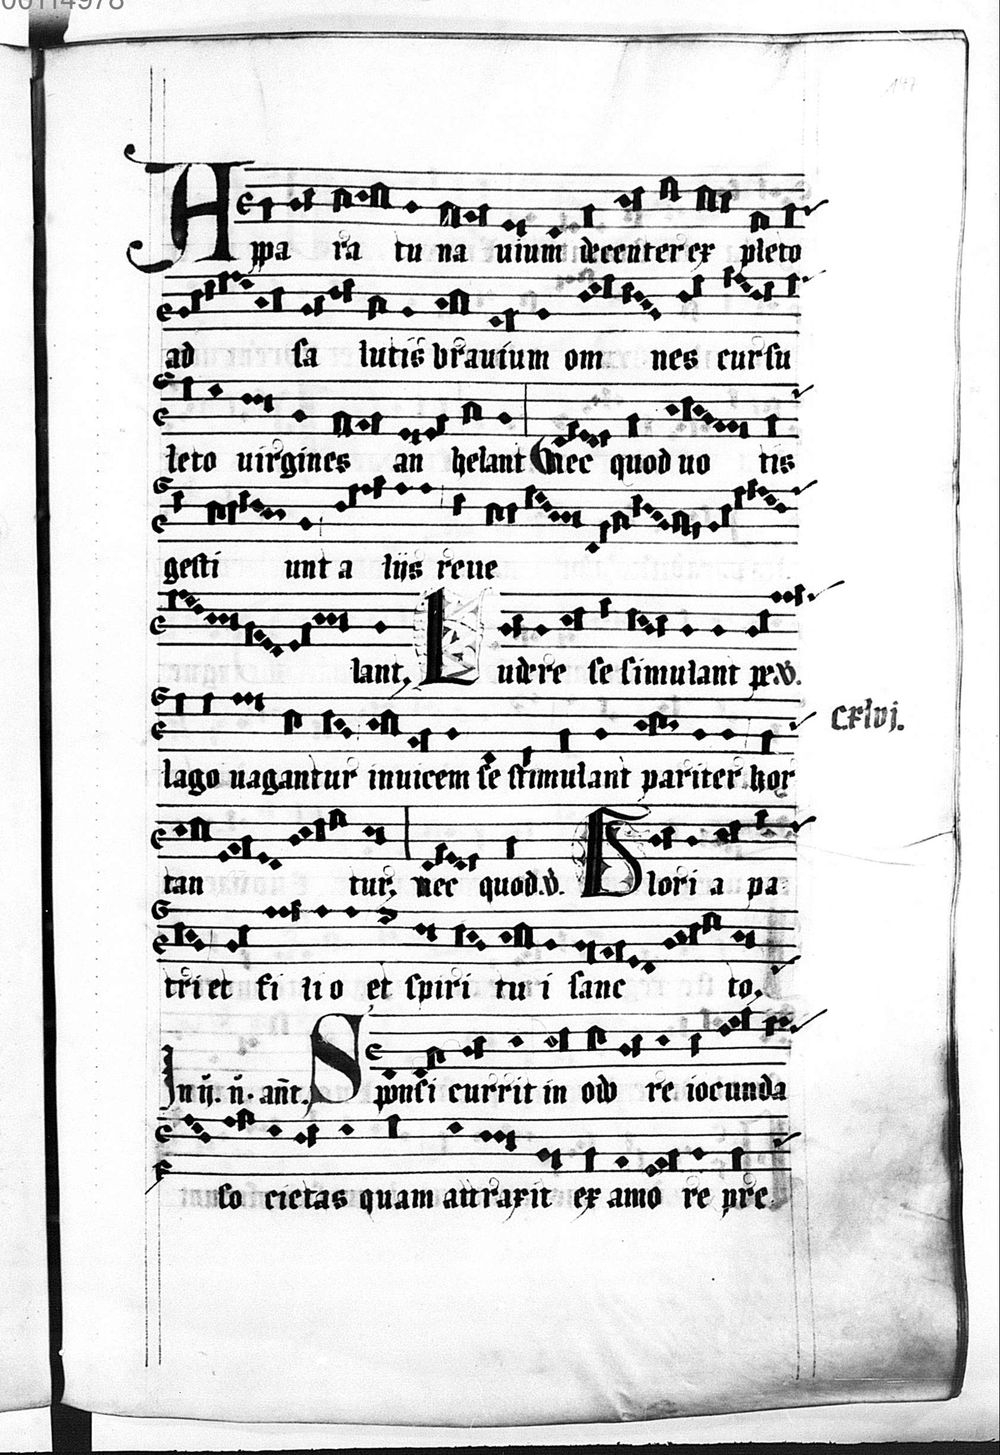 00114978
147
Appa ra tu na uium decenter ex pleto
ad sa lutis brauium om nes cursu
leto uirgines an helant Nec quod uo tis
gesti unt a liis reue
lant. Ludere se simulant pe.v.
lago uagantur inuicem se stimulant pariter hor
Cxlvj.
tan tur. nec quod.v. Glori a pa
tri et fi lio et spiri tu i sanc to.
In ij. n. ant. Sponsi currit in odo re iocunda
so cietas quam attraxit ex amo re pre